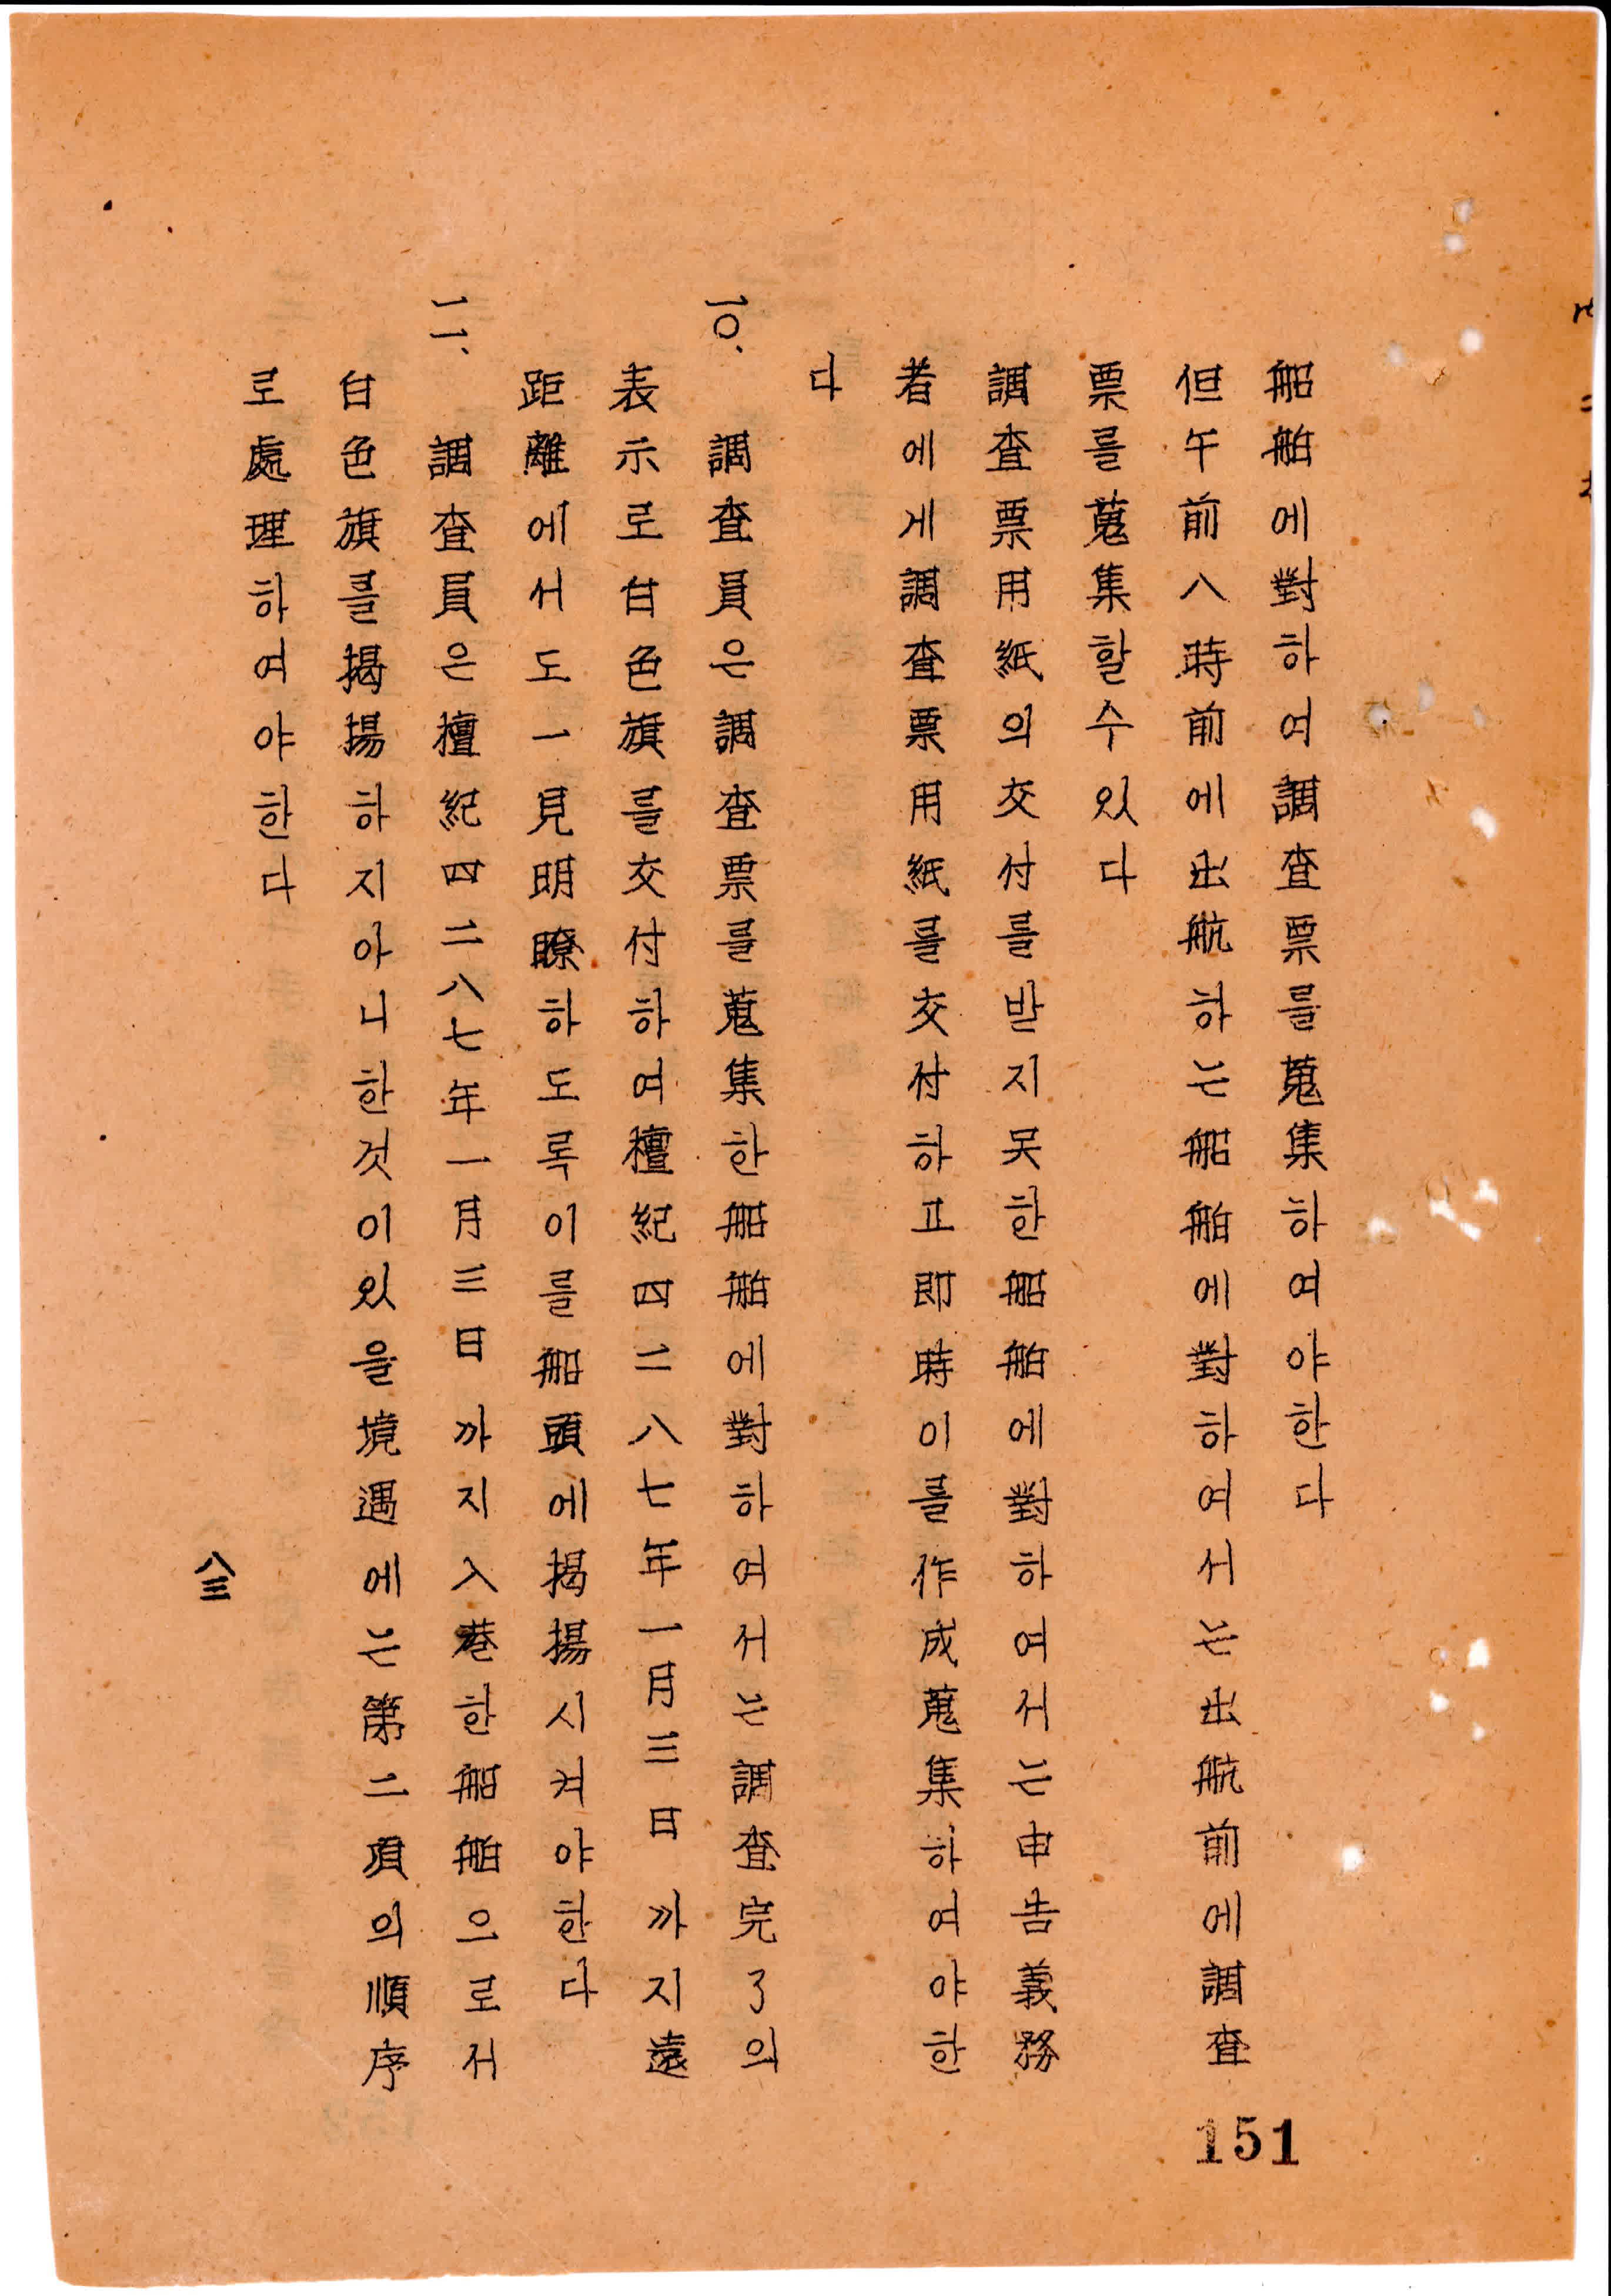 船舶에對하여調査票를蒐集하여야한다
但午前八時前에出航하는船舶에對하여서는出航前에調査
票를蒐集할수있다
調査票用紙의交付를받지못한船舶에對하여서는申告義務
者에게調査票用紙를交付하고即時이를作成蒐集하여야한
다
一〇. 調査員은調査票를蒐集한船舶에對하여서는調査完了의
表示로白色旗를交付하여檀紀四二八七年一月三日까지遠
距離에서도一見明瞭하도록이를船頭에揭揚시켜야한다
一一、調査員은檀紀四二八七年一月三日까지入港한船舶으로서
白色旗를揭揚하지아니한것이있을境遇에는第二項의順序
로處理하여야한다
八三
151